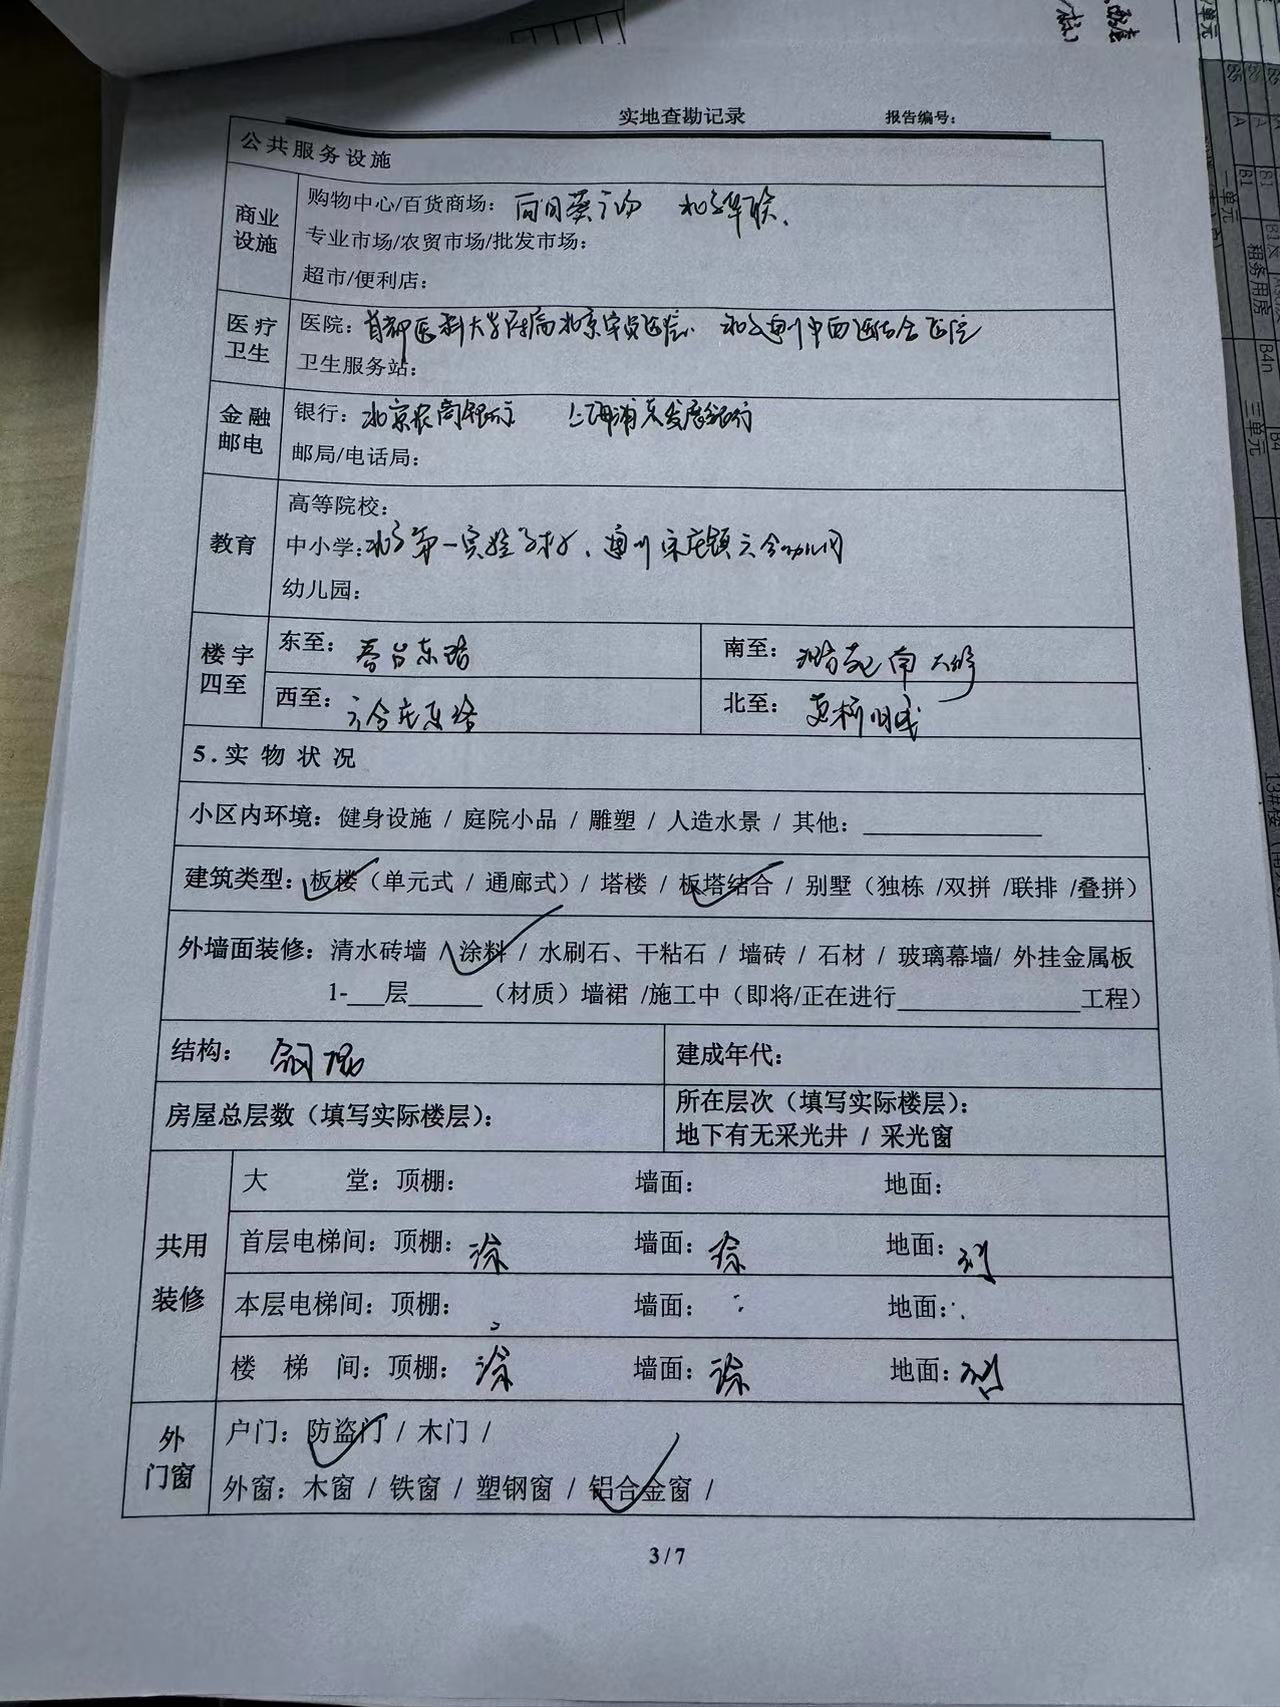 实地查勘记录 报告编号：
公共服务设施
商业设施
购物中心/百货商场：向日葵广场 北京华联、
专业市场/农贸市场/批发市场：
超市/便利店：
医疗卫生
医院：首都医科大学附属北京安贞医院、北京通州中西医结合医院
卫生服务站：
金融邮电
银行：北京农商银行 上海浦东发展银行
邮局/电话局：
教育
高等院校：
中小学：北京第一实验学校、通州宋庄镇六合幼儿园
幼儿园：
楼宇四至
东至：春台东路 南至：南
西至：六合庄东路 北至：
5.实物状况
小区内环境：健身设施 / 庭院小品 / 雕塑 / 人造水景 / 其他：
建筑类型：板楼（单元式 / 通廊式）/ 塔楼 / 板塔结合 / 别墅（独栋 /双拼 /联排 /叠拼）
外墙面装修：清水砖墙 / 涂料 / 水刷石、干粘石 / 墙砖 / 石材 / 玻璃幕墙/ 外挂金属板
1-___层______（材质）墙裙 /施工中（即将/正在进行______________工程）
结构：钢混 建成年代：
房屋总层数（填写实际楼层）： 所在层次（填写实际楼层）：
地下有无采光井 / 采光窗
共用装修
大堂：顶棚： 墙面： 地面：
首层电梯间：顶棚：涂 墙面：涂 地面：
本层电梯间：顶棚： 墙面： 地面：
楼梯间：顶棚：涂 墙面：涂 地面：
外门窗
户门：防盗门 / 木门 /
外窗：木窗 / 铁窗 / 塑钢窗 / 铝合金窗 /
3/7